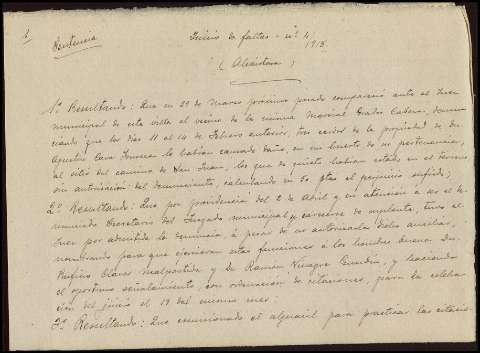 1
Sentencia
Juicio de faltas - nº 4/1918.
(Alcántara)
1º Resultando: Que en 29 de Marzo próximo pasado compareció ante el Juez
municipal de esta villa el vecino de la misma Marcial Cabrera, denun
ciando que los dias 11 al 14 de Febrero anterior, tres cerdos de la propiedad de Dn
Agustín le habian causado daño, en un huerto de su pertenencia,
al sitio del camino de San Juan, los que de quieto habian estado en el terreno
sin autorización del denunciante, calculando en 50 ptas el perjuicio sufrido;
2º Resultando: Que por providencia del 2 de Abril y en atención a ser el de
nunciado Secretario del Juzgado municipal y carecerse de suplente, tuvo el
Juez por admitida la denuncia á pesar de no autorizarla dicho auxiliar,
nombrando para que ejercieran estas funciones á los hombres buenos Dn
Rufino Claver Malpartida y Dn Ramon Vinagre y haciendo
el oportuno señalamiento, con ordenacion de citaciones, para la celebra
ción del juicio el 19 del mismo mes:
3º Resultando: Que comisionado el alguacil para practicar las citacio-